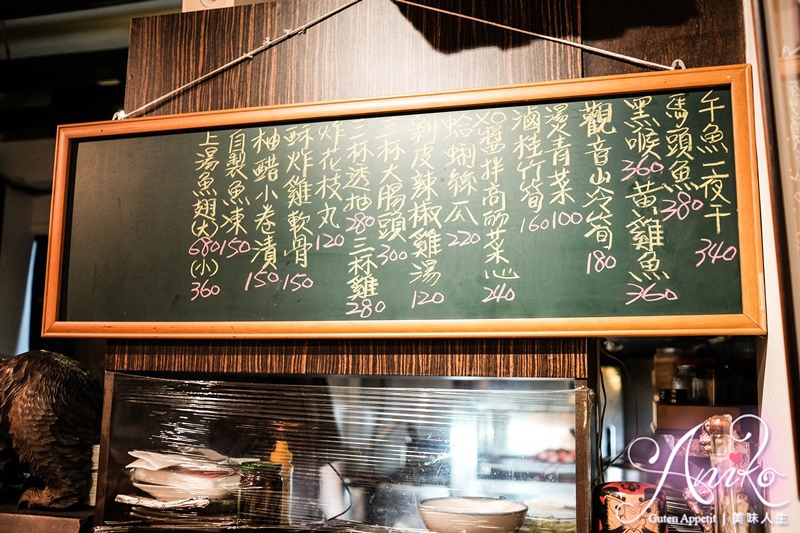 午魚一夜干 340
馬頭魚 380
黑喉 360 黃雞魚 360
觀音山冷筍 180
燙青菜 100
滷桂竹筍 160
XO醬拌高麗菜心 240
蛤蜊絲瓜 220
剝皮辣椒雞湯 120
三杯大腸頭 300
三杯透抽 280 三杯雞 280
炸花枝丸 120
酥炸雞軟骨 150
柚醋小卷漬 150
自製魚凍 150
上湯魚翅(大) 680 (小) 360
Aniko
Guten Appetit | 美味人生